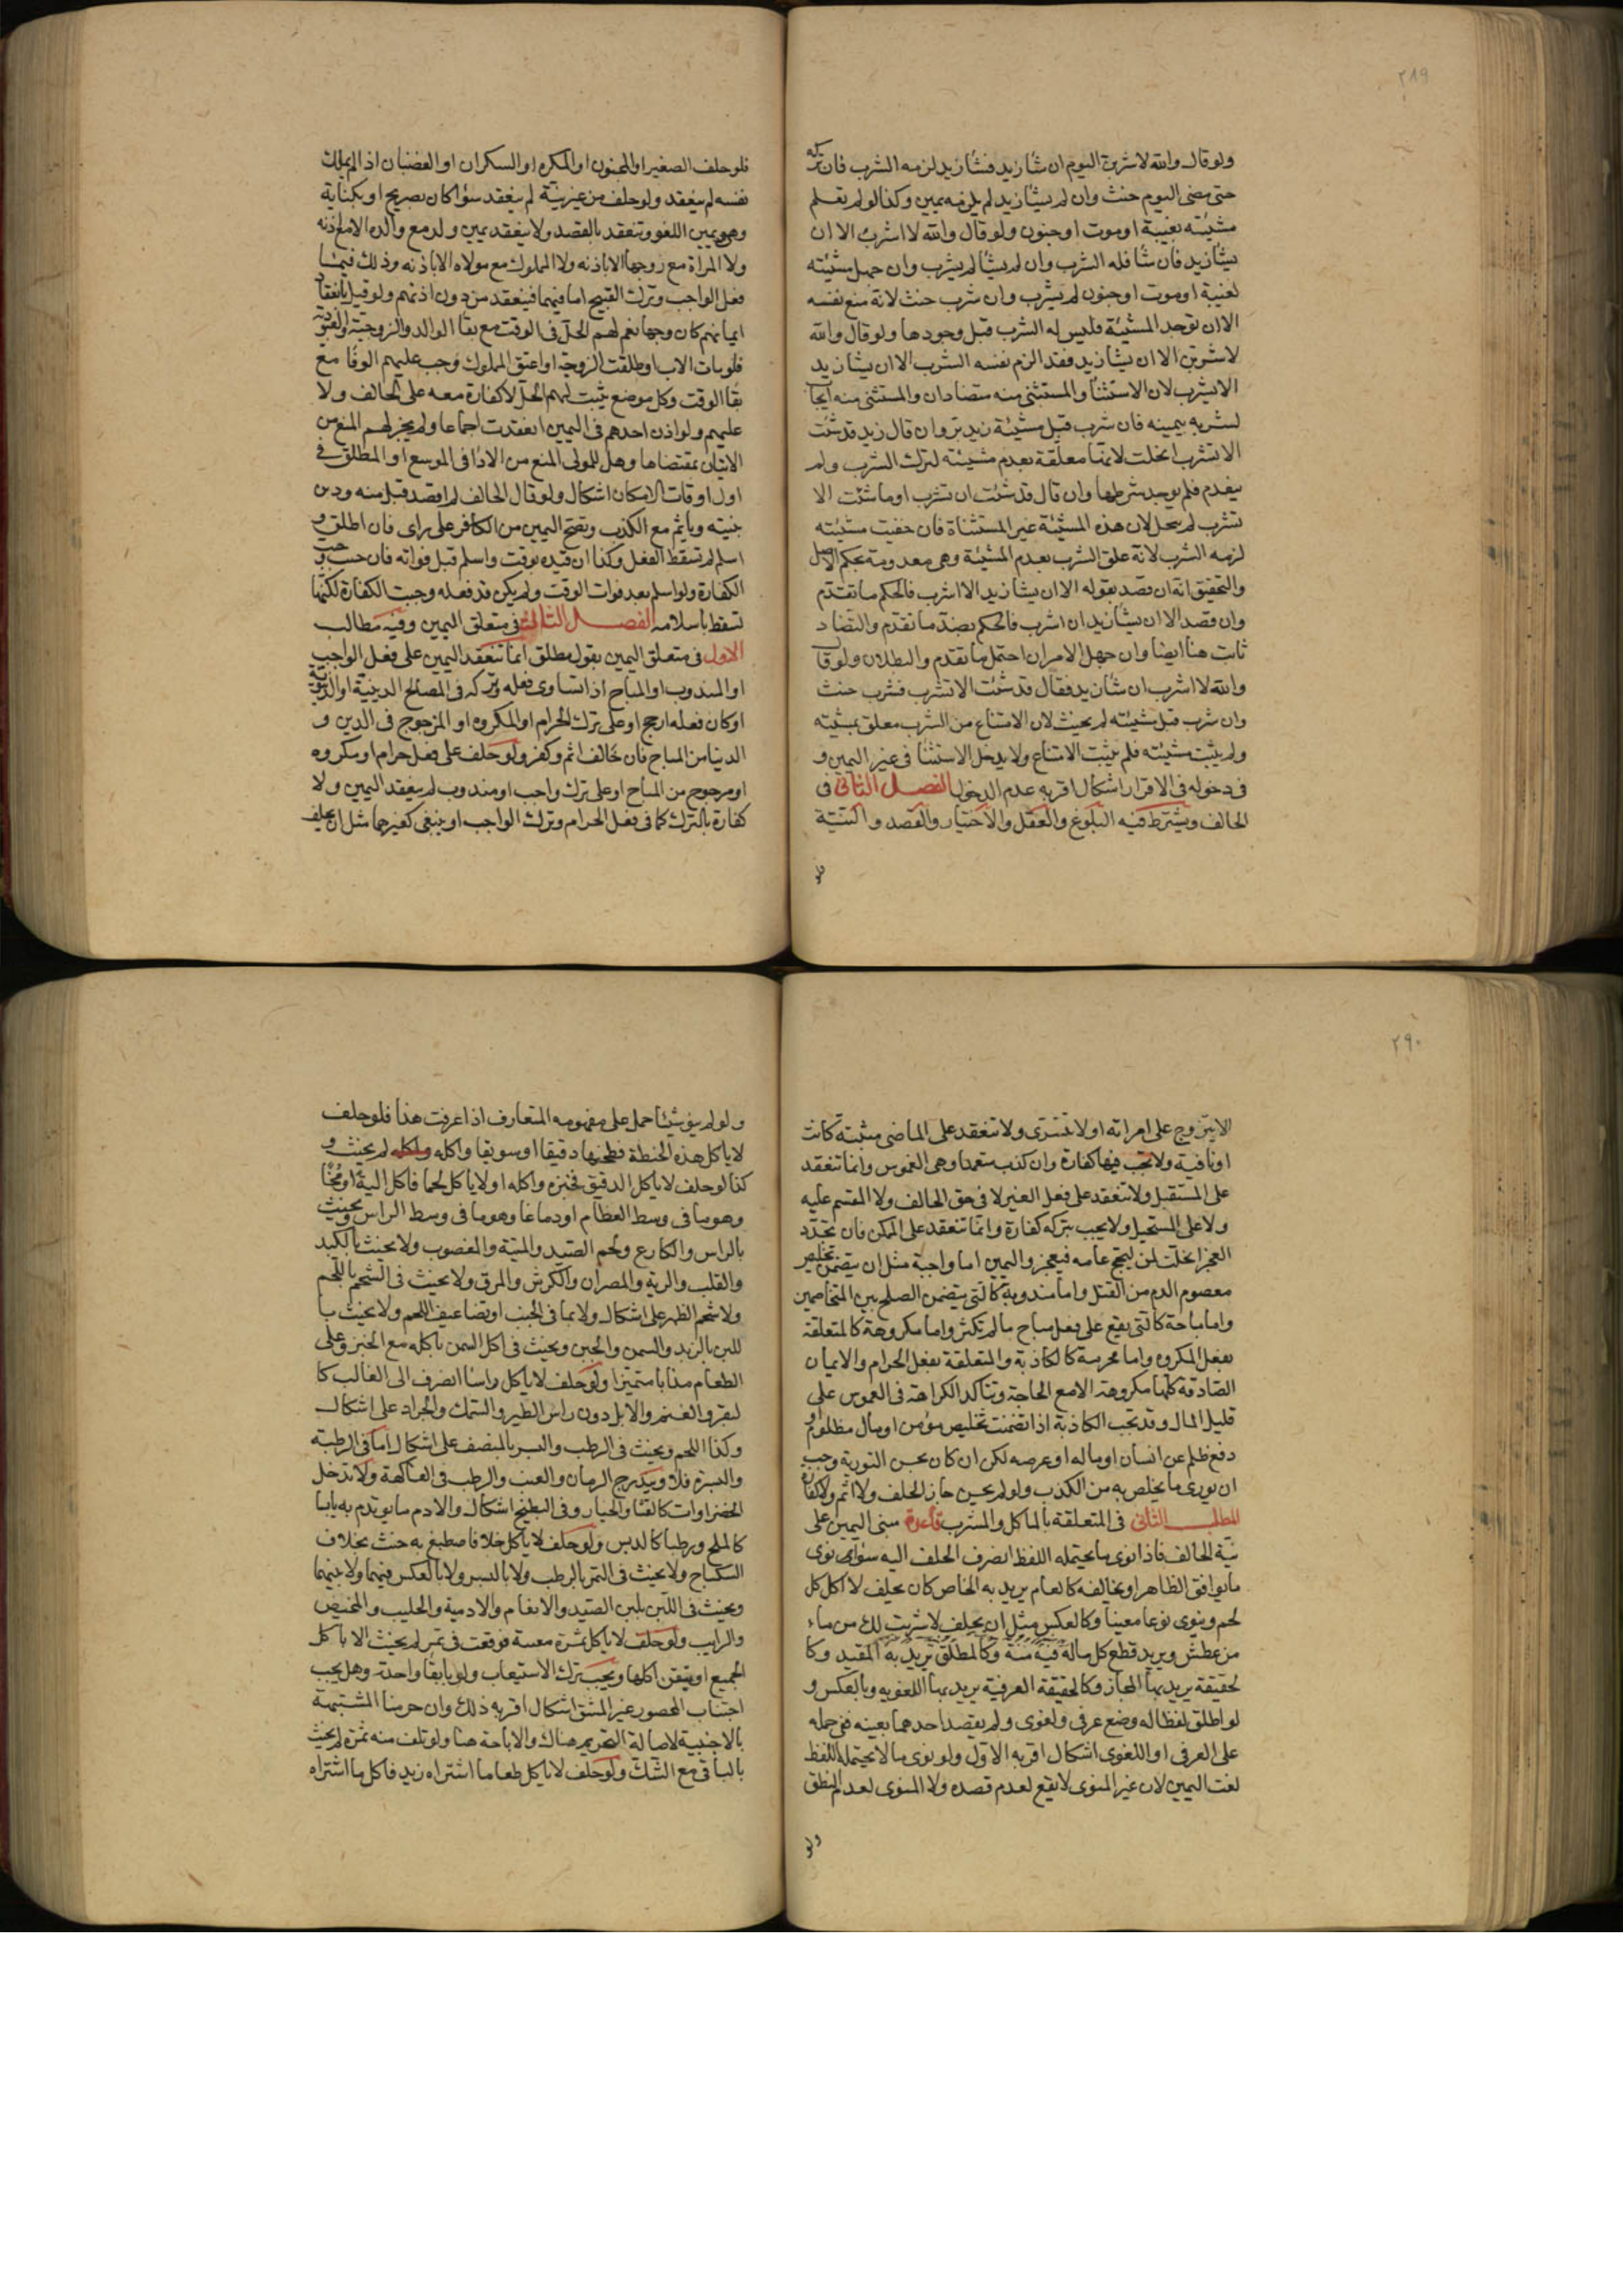 ٢٨٩
ولو قال والله لاشربن اليوم ان شا زيد فشا زيد لزمه الشرب فان تركه
حتى مضى اليوم حنث وان لم يشا زيد لم يلزمه يمين وكذا لو لم تعلم
مشيته بغيبة او موت او جنون ولو قال والله لا اشرب الا ان
يشا زيد فان شا فله الشرب وان لم يشا لم يشرب وان جهل مشيته
لغيبة او موت او جنون لم يشرب وان شرب حنث لانه منع نفسه
الا ان توجد المشيئة فليس له الشرب قبل وجودها ولو قال والله
لاشربن الا ان يشا زيد فقد الزم نفسه الشرب الا ان يشا زيد
الا يشرب لان الاستثنا والمستثنى منه متضادان والمستثنى منه ايجاب
لشربه بيمينه فان شرب قبل مشيئة زيد بر وان قال زيد قد شئت
الا تشرب انحلت لانها معلقة بعدم مشيئته لترك الشرب ولم
ينعدم فلم يوجد شرطها وان قال قد شئت ان تشرب او ما شئت الا
تشرب لم ينحل لان هذه المشيئة غير المستثناة فان خفيت مشيئته
لزمه الشرب لانه علق الشرب بعدم المشيئة وهي معدومة بحكم الاصل
والتحقيق انه ان قصد بقوله الا ان يشا زيد الا اشرب فالحكم ما تقدم
وان قصد الا ان يشا زيد ان اشرب فالحكم بضد ما تقدم والتضاد
ثابت هنا ايضا وان جهل الامران احتمل ما تقدم والبطلان ولو قال
والله لا اشرب ان شا زيد فقال قد شئت الا تشرب فشرب حنث
وان شرب قبل مشيئته لم يحنث لان الامتناع من الشرب معلق بمشيته
ولم يثبت مشيئته فلم يثبت الامتناع ولا يدخل الاستثنا في غير اليمين و
في دخوله في الاقرار اشكال اقربه عدم الدخول الفصل الثاني في
الحالف ويشترط فيه البلوغ والعقل والاختيار والقصد والنية
فلو
فلو حلف الصغير او المجنون او المكره او السكران او الغضبان اذا لم يملك
نفسه لم ينعقد ولو حلف من غير نية لم ينعقد سوا كان بصريح او بكناية
وهو يمين اللغو وتنعقد بالقصد ولا ينعقد يمين ولد مع والده الا مع اذنه
ولا المراة مع زوجها الا باذنه ولا المملوك مع مولاه الا باذنه وذلك فيما عدا
فعل الواجب وترك القبيح اما فيهما فينعقد من دون اذنهم ولو قيل بانعقاد
ايمانهم كان وجها نعم لهم الحل في الوقت مع بقا الوالد والزوجية والعبودية
فلو مات الاب او طلقت الزوجة او اعتق المملوك وجب عليهم الوفا مع
بقا الوقت وكل موضع يثبت لهم الحل لا كفارة معه على الحالف ولا
عليهم ولو اذن احدهم في اليمين انعقدت اجماعا ولم يجز لهم المنع من
الاتيان بمقتضاها وهل للمولى المنع من الادا في الموسع او المطلق في
اول اوقات الامكان اشكال ولو قال الحالف لم اقصد قبل منه ودين
بنيته وياثم مع الكذب وتصح اليمين من الكافر على راى فان اطلق و
اسلم لم تسقط الفعل وكذا ان قيده بوقت واسلم قبل فواته فان حنث وجب
الكفارة ولو اسلم بعد فوات الوقت ولم يكن قد فعله وجبت الكفارة لكنها
تسقط باسلامه الفصل الثالث في متعلق اليمين وفيه مطالب
الاول في متعلق اليمين بقول مطلق انما تنعقد اليمين على فعل الواجب
او المندوب او المباح اذا تساوى فعله وتركه في المصالح الدينية او الدنيوية
او كان فعله ارجح او على ترك الحرام او المكروه او المرجوح في الدين و
الدنيا من المباح فان خالف اثم وكفر ولو حلف على فعل حرام او مكروه
او مرجوح من المباح او على ترك واجب او مندوب لم ينعقد اليمين ولا
كفارة بالترك كما في فعل الحرام وترك الواجب او ينبغي كغيرهما مثل ان يحلف
٢٩٠
الا يتزوج على امراته او لا تتسرى ولا تنعقد على الماضي مثبتة كانت
او نافية ولا تجب فيها كفارة وان كذب متعمدا وهي الغموس وانما تنعقد
على المستقبل ولا تنعقد على فعل الغير لا في حق الحالف ولا المقسم عليه
ولا على المستحيل ولا يجب بتركه كفارة وانما تنعقد على الممكن فان تجدد
العجز انحلت كمن ليحج عامه فيعجز واليمين اما واجبة مثل ان يتضمن تخليص
معصوم الدم من القتل واما مندوبة كالتي يتضمن الصلح بين المتخاصمين
واما مباحة كالتي يقع على فعل مباح ما لم تكثر واما مكروهة كالمتعلقة
بفعل المكروه واما محرمة كالكاذبة والمتعلقة بفعل الحرام والايمان
الصادقة كلها مكروهة الا مع الحاجة وتتاكد الكراهة في الغموس على
قليل المال وقد تجب الكاذبة اذا تضمنت تخليص مؤمن او مال مظلوم او
دفع ظلم عن انسان او ماله او عرضه لكن ان كان يحسن التورية وجب
ان يورى ما يخلص به من الكذب ولو لم يحسن جاز الحلف ولا اثم ولا كفارة
المطلب الثاني في المتعلقة بالماكل والمشرب قاعدة مبنى اليمين على
نية الحالف فاذا نوى ما يحتمله اللفظ انصرف الحلف اليه سوا نوى
ما يوافق الظاهر او يخالفه كالعام يريد به الخاص كان يحلف لا اكل كل
لحم وينوى نوعا معينا وكالعكس مثل ان يحلف لا شربت لك من ماء
من عطش ويريد قطع كل ماله فيه منة وكالمطلق يريد به المقيد وكا
لحقيقة يريد بها المجاز وكالحقيقة العرفية يريد بها اللغوية وبالعكس و
لو اطلق لفظا له وضع عرفي ولغوى ولم يقصد احدهما بعينه ففي حمله
على العرفي او اللغوى اشكال اقربه الاول ولو نوى ما لا يحتمله اللفظ
لغت اليمين لان غير المنوى لا يقع لعدم قصده ولا المنوى لعدم النطق
ولو
ولو لم ينو شيئا حمل على مفهومه المتعارف اذا عرفت هذا فلو حلف
لا ياكل هذه الحنطة فطحنها دقيقا او سويقا واكله لم يحنث و
كذا لو حلف لا ياكل الدقيق فخبزه واكله او لا ياكل لحما فاكل الية او مخا
وهو ما في وسط العظام او دماغا وهو ما في وسط الراس ويحنث
بالراس والكارع ولحم الصيد والميتة والمغصوب ولا يحنث بالكبد
والقلب والرية والمصران والكرش والمرق ولا يحنث في الشحم باللحم
ولا شحم الظهر على اشكال ولا بما في الجنب او تضاعيف اللحم ولا يحنث با
للبن بالزبد والسمن والجبن ويحنث في اكل السمن باكله مع الخبز وعلى
الطعام مذابا متميزا ولو حلف لا ياكل راسا انصرف الى الغالب كا
لبقر والغنم والابل دون راس الطير والسمك والجراد على اشكال
وكذا اللحم ويحنث في الرطب والبسر بالمنصف على اشكال اما في الرطبة
والبسرة فلا ويندرج الرمان والعنب والرطب في الفاكهة ولا تدخل
الخضراوات كالقثا والخيار وفي البطيخ اشكال والادم ما يوتدم به يابسا
كالملح ورطبا كالدبس ولو حلف لا ياكل خلا فاصطبغ به حنث بخلاف
السكباج ولا يحنث في التمر بالرطب ولا بالبسر ولا بالعكس فيهما ولا بينهما
ويحنث في اللبن بلبن الصيد والانعام والادمية والحليب والمخيض
والرايب ولو حلف لا ياكل تمرة معينة فوقعت في تمر لم يحنث الا باكل
الجميع او بتيقن اكلها ويجب ترك الاستيعاب ولو بابقا واحدة وهل يجب
اجتناب المحصور غير المشق اشكال اقربه ذلك وان حرمنا المشتبهة
بالاجنبية لاصالة التحريم هناك والاباحة هنا ولو تلف منه تمرة لم يحنث
بالباقي مع الشك ولو حلف لا ياكل طعاما اشتراه زيد فاكل ما اشتراه